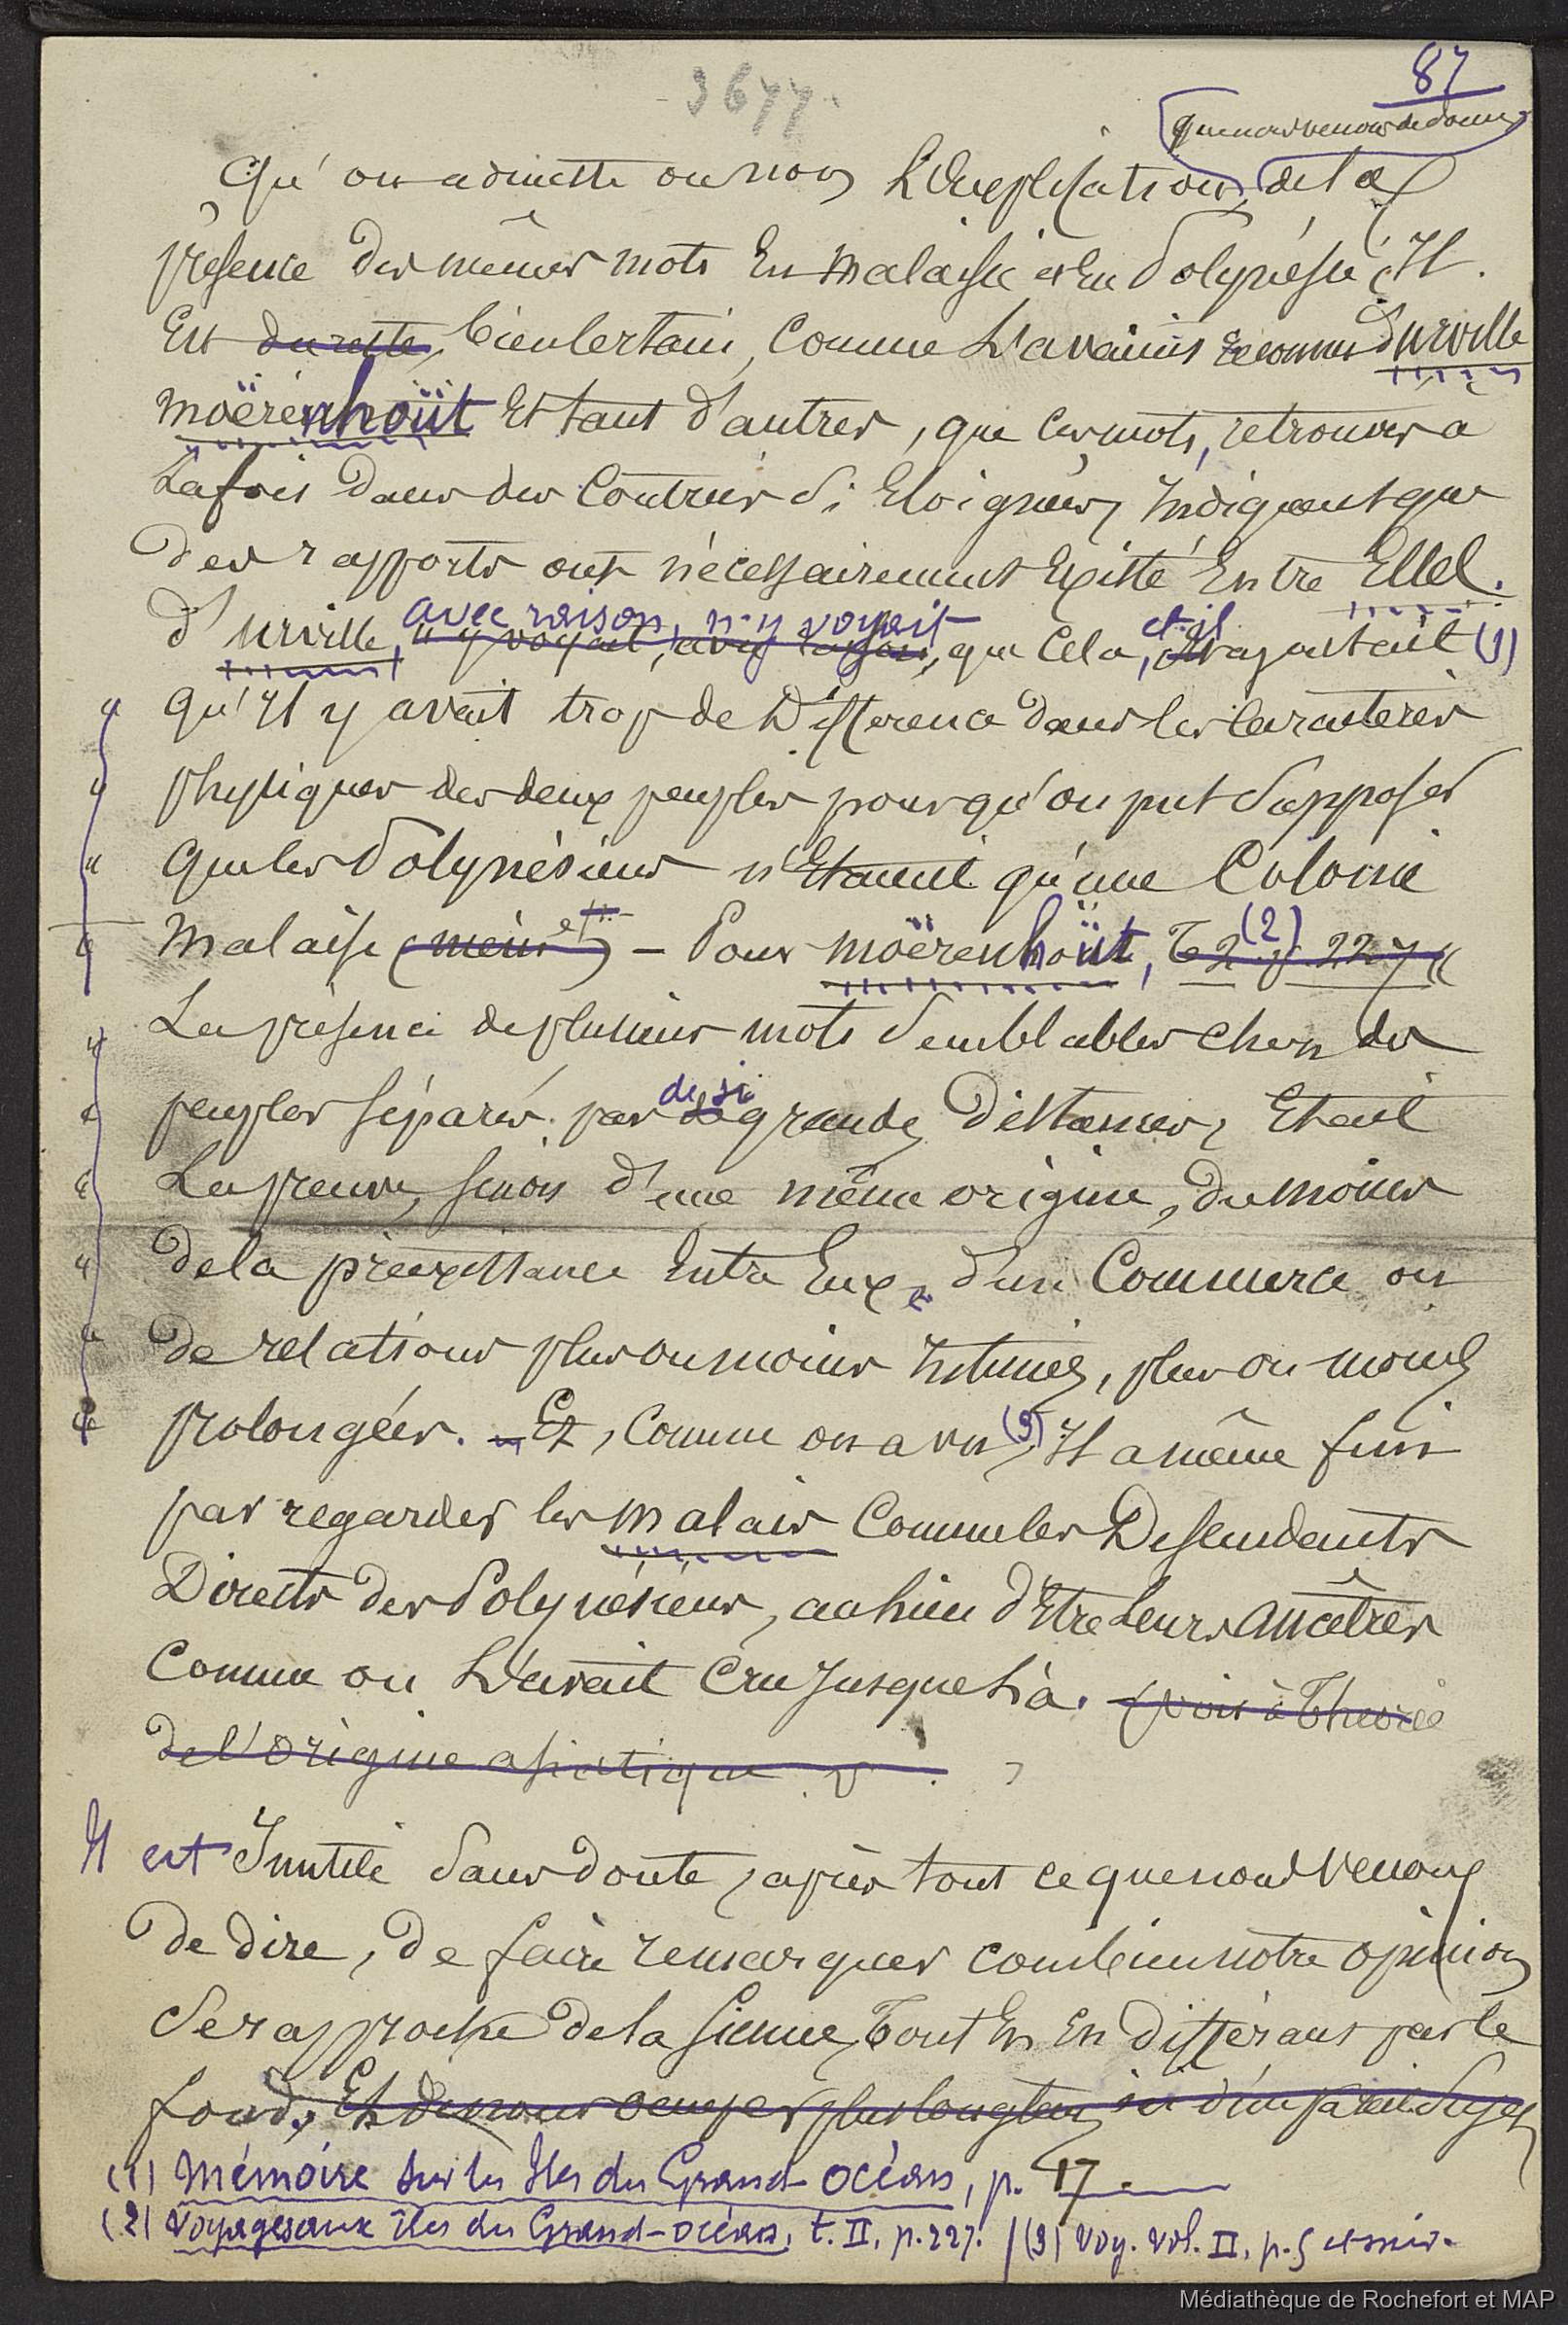 3677
87
que nous venons de donner
Qu'on admette ou non L'Explication, de la
présence des mêmes mots En Malaisie et En Polynésie, Il
Est du reste, bien certain, Comme L'avaient reconnu D'urville
Moërenhoüt Et tant d'autres, que ces mots, retrouvés à
La fois dans des Contrées Si Eloignées, Indiquent que
des rapports ont nécessairement Existé Entre Elles.
avec raison, n'y voyait et il
D'urville, n'y voyait, avec raison, que Cela, Il ajoutait (1)
« qu'Il y avait trop de Différence dans les Caractères
« physiques des deux peuples pour qu'on put Supposer
« que les Polynésiens n'Etaient qu'une Colonie
« Malaise (mém — Pour Moërenhoüt, (2) T 2 p. 227 «
« La présence de plusieurs mots Semblables chez des
de si
« peuples séparés par grandes Distances, Etait
« La preuve, sinon d'une même origine, du moins
« de la préexistance Entre Eux, d'un Commerce ou
« de relations plus ou moins Intimes, plus ou moins
« prolongées. — Et, Comme on a vu (3), Il a même fini
par regarder les Malais Comme les Descendants
Directs des Polynésiens, au lieu d'Etre Leurs Ancêtres
Comme on L'avait Cru Jusque Là. (voir à Théorie
de l'Origine asiatique p )
Il est Inutile Sans doute, après tout ce que nous Venons
De dire, De faire remarquer combien notre opinion
Se rapproche De la Sienne, Tout En En différant par le
fond, Et de nous occuper plus longtems ici d'un pareil Sujet
(1) Mémoire sur les Iles du Grand-Océan, p. 17.
(2) Voyages aux îles du Grand-océan, t. II, p. 227. / (3) Voy. vol. II, p. 5 et suiv.
Médiathèque de Rochefort et MAP